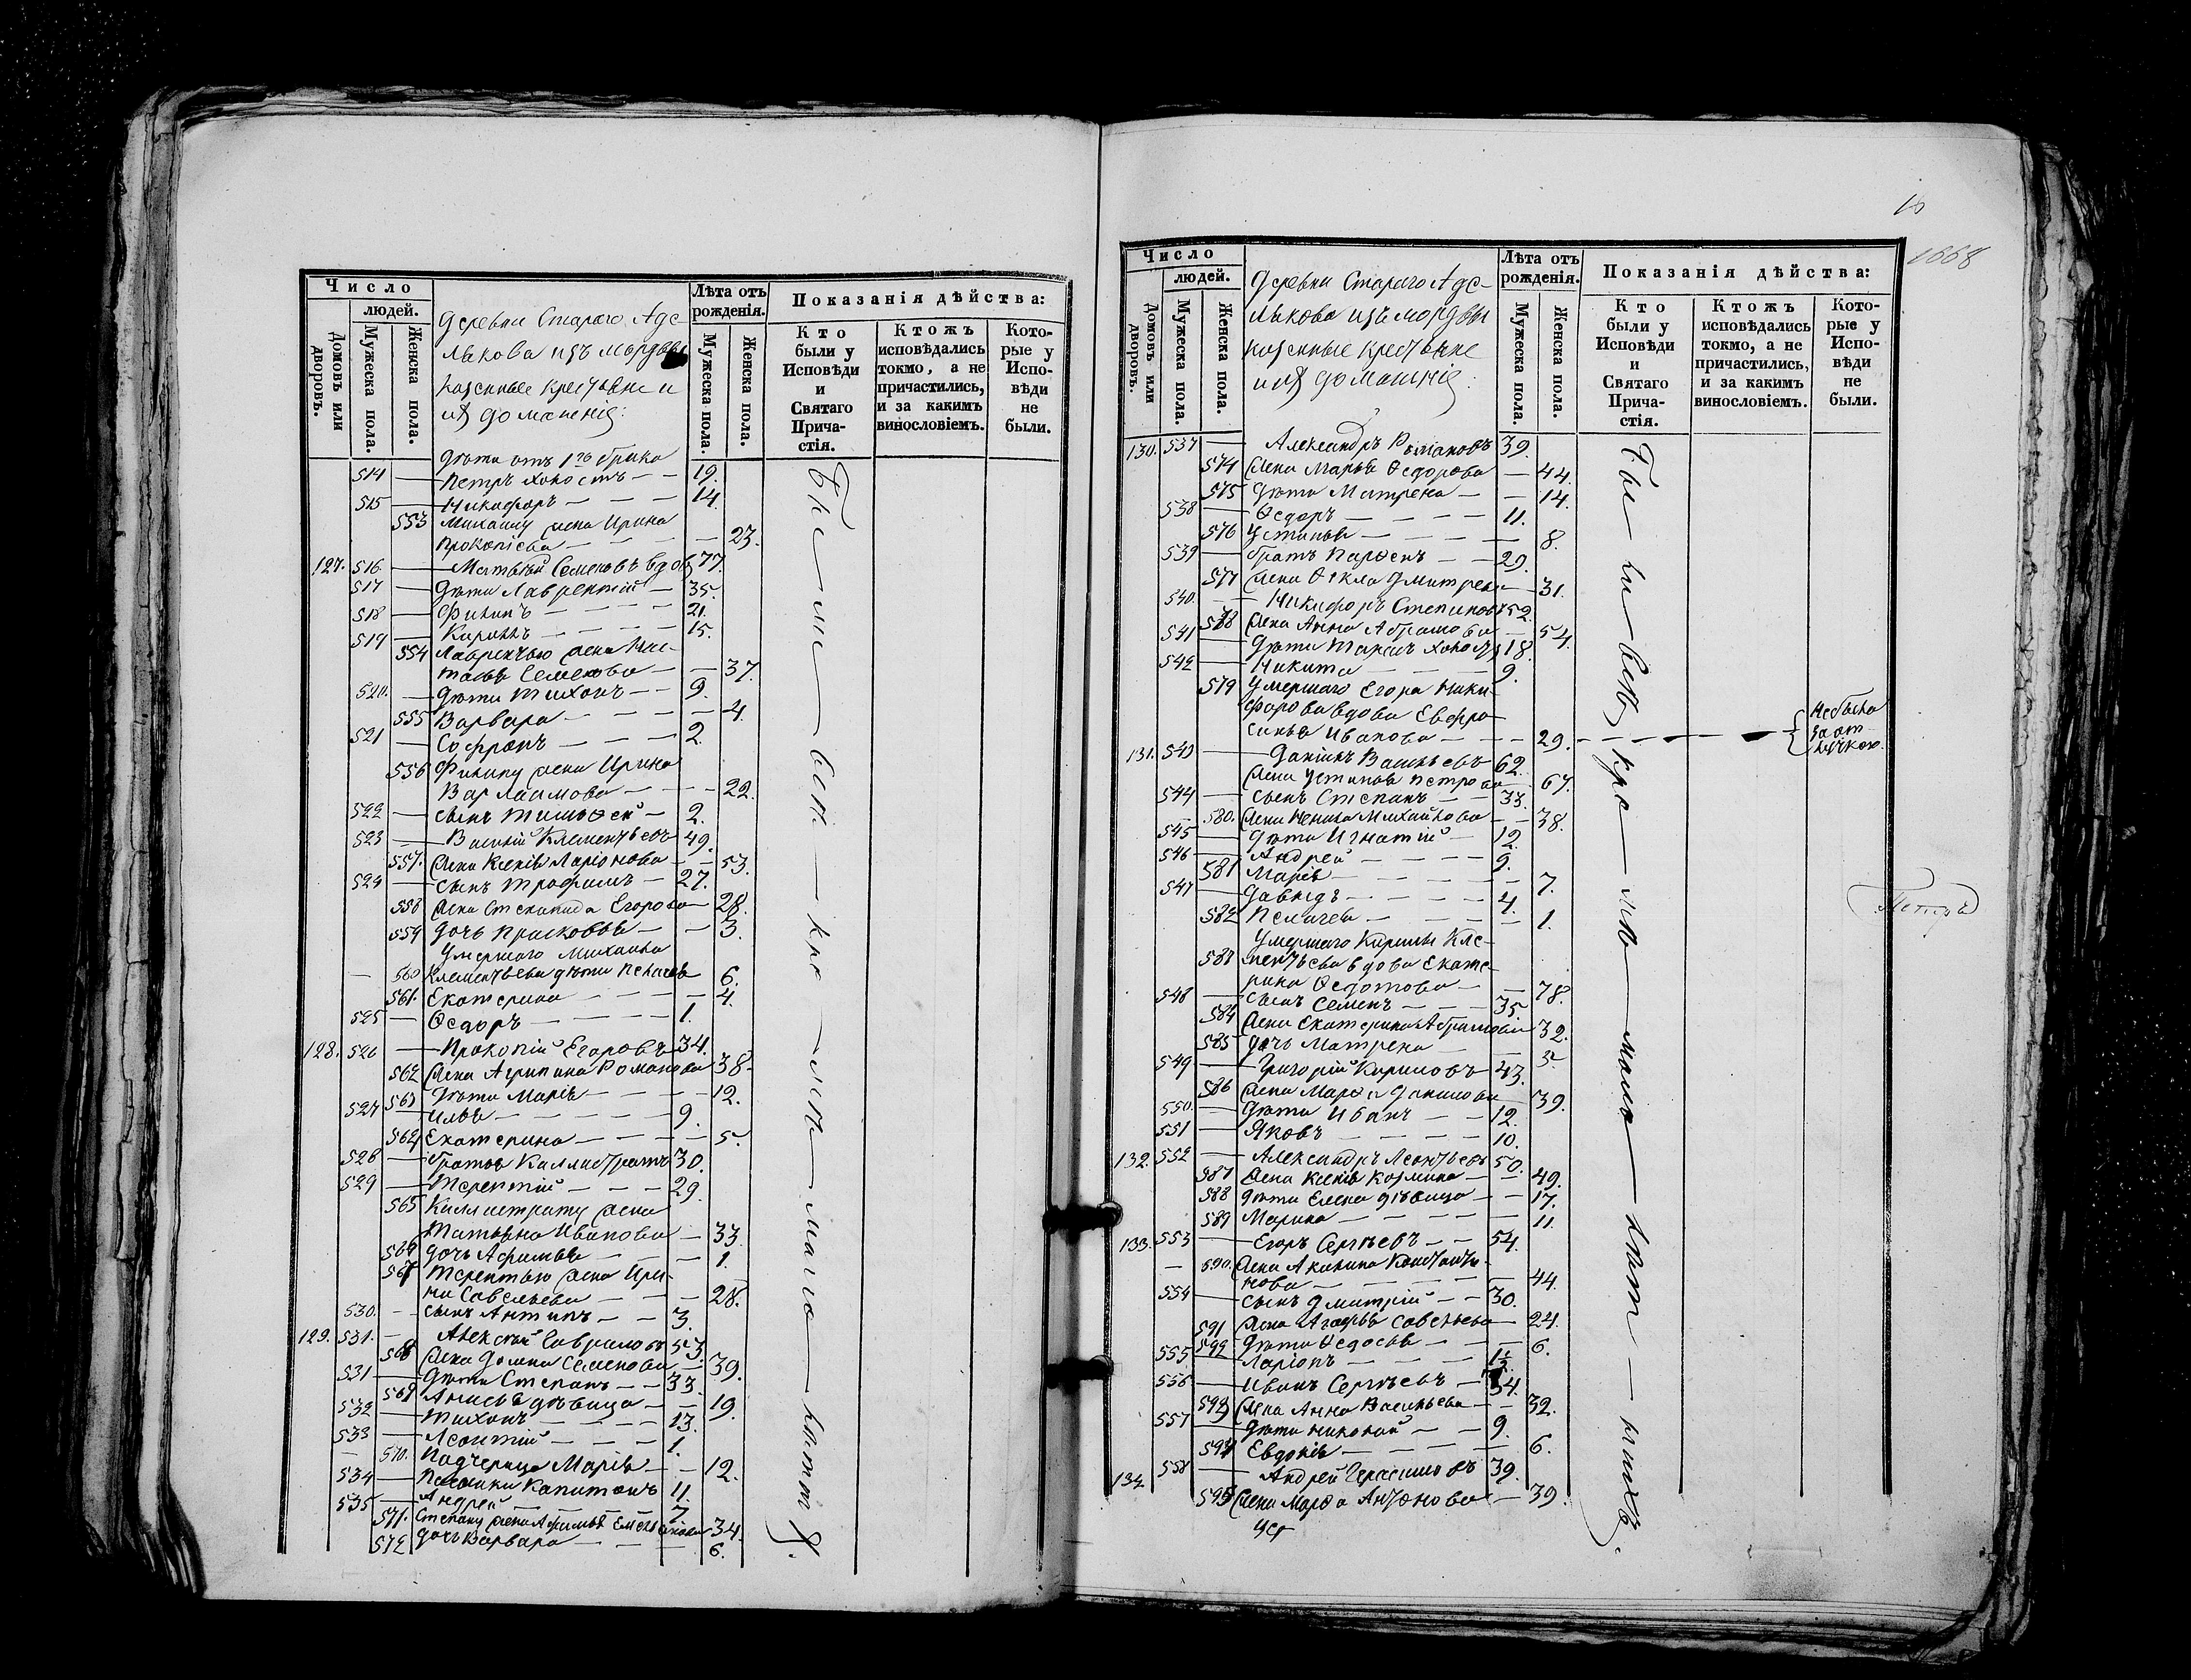 Число
людей.
Домовъ или дворовъ.
Мужеска пола.
Женска пола.
Деревни Стараго Аде-
лякова изъ мордвы
казенные крестьяне и
ихъ домашнія:
Лѣта отъ рожденія.
Мужеска пола.
Женска пола.
Показанія дѣйства:
Кто были у Исповѣди и Святаго Прича- стія.
Ктожъ исповѣдались токмо, а не причастились, и за какимъ винословіемъ.
Кото- рые у Испо- вѣди не были.
дѣти отъ 1го брака
514 — Петръ холостъ — — 19.
515 — Никифоръ — — 14.
553 Михаилу жена Ирина
Прокопіева — — — 23.
127. 516 — Матвѣй Семеновъ вдов 77.
517 — дѣти Лаврентій — 35.
518 — Филипъ — — — 21.
519 — Кирилъ — — — 15.
554 Лаврентью жена На-
Семенова — — 37.
520. — дѣти Тихонъ — — 9.
555 Варвара — — — — 4.
521 — Софронъ — — — 2.
556 Филипу жена Ирина
Варлаамова — — — 22.
522 — сынъ Тимоѳей — 2.
523 — Василій Клементьевъ 49.
557. жена Ксенія Ларіонова — — 53.
524 — сынъ Трофимъ — 27.
558 жена Степанида Егорова — 28.
559 дочь Прасковья — — 3.
Умершаго Михаила
— 560 Клементьева дѣти Пелагея 6.
561. Екатерина — — — — 4.
525 — Ѳедоръ — — — — 1.
128. 526 — Прокопій Егоровъ 34.
562 жена Агрипина Романова 38.
563 дѣти Марія — — — — 12.
527 — Илья — — — — — 9.
564 Екатерина — — — — 5.
528 — братья Каллистратъ 30.
529 — Терентій — — — 29.
565 Каллистрату жена
Татьяна Иванова — 33.
566 дочь Афимья — — — 1.
567 Терентью жена Ири-
на Савельева — — — 28.
530. — сынъ Антипъ — — 3.
129. 531. — Алексѣй Гавриловъ 53.
568 жена Домна Семенова — 39.
531 — дѣти Степанъ — — 33.
569 Анисья дѣвица — — 19.
532 — Тихонъ — — — — 13.
533 — Леонтій — — — 1.
— 570. Падчерица Марія — — 12.
534 — Пасынки Капитонъ 11.
535 — Андрей — — — — 7.
571. Степану жена Афимья Емельянова 34.
572 дочь Варвара — — — — 6.
Бы — ли — вск — кре — ль — мало — лѣт
16
1668
Число
людей.
Домовъ или дворовъ.
Мужеска пола.
Женска пола.
Деревни Стараго Аде-
лякова изъ мордвы
казенные крестьяне
и ихъ домашнія:
Лѣта отъ рожденія.
Мужеска пола.
Женска пола.
Показанія дѣйства:
Кто были у Исповѣди и Святаго Прича- стія.
Ктожъ исповѣдались токмо, а не причастились, и за какимъ винословіемъ.
Кото- рые у Испо- вѣди не были.
130. 537 — Александръ Романовъ 39.
574 жена Марья Ѳедорова — 44.
575 дѣти Матрена — — 14.
538 — Ѳедоръ — — — — 11.
576 Устинья — — — — 8.
539 — братъ Парѳенъ — — 29.
577 жена Ѳекла Дмитрева — 31.
540. — Никифоръ Степановъ 52.
578 жена Анна Абрамова — 54.
541 — дѣти Тарасъ холостъ 18.
542 — Никита — — — — 9.
579 Умершаго Егора Ники-
форова вдова Евфро-
синья Иванова — — — 29.
Небыла
за от-
лучкою.
131. 543 — Даніилъ Васильевъ 62.
жена Устинья Петрова 67.
544 — сынъ Степанъ — — 33.
580. жена Ненила Михайлова — — 38.
545 — дѣти Игнатій — 12.
546 — Андрей — — — — 9.
581 Марія — — — — — 7.
547 — Давыдъ — — — — 4.
582 Пелагея — — — — 1.
Умершаго Кирилы Кле-
583 ментьева вдова Екате-
рина Ѳедотова — — 78.
548 — сынъ Семенъ — — — 35
584 жена Екатерина Абрамова 32.
585 дочь Матрена — — 3.
549 — Григорій Кириловъ — 43.
586 жена Марѳа Данилова — 39.
550. — дѣти Иванъ — — 12.
551 — Яковъ — — — — 10.
132. 552 — Александръ Леонтьевъ 50.
587 жена Ксенія Козмина — — 49.
588 дѣти Елена дѣвица — — 17.
589 Марина — — — — — 11.
133. 553 — Егоръ Сергѣевъ — — 54.
— 590. жена Акилина Константи-
нова — — — — — 44.
554 — сынъ Дмитрій — — 30.
591 жена Агафья Савельева — 24.
592 дѣти Ѳедосья — — — 6.
555 — Ларіонъ — — — — 1½
556 — Иванъ Сергѣевъ — 34.
593 жена Анна Васильева — — 32.
557 — дѣти Николай — — 9.
594 Евдокія — — — — 6.
134 558 — Андрей Герасимовъ 39.
595 жена Марѳа Антонова — 39.
Бы — ли — вск — кре — ль — мало — лѣт — нихъ.